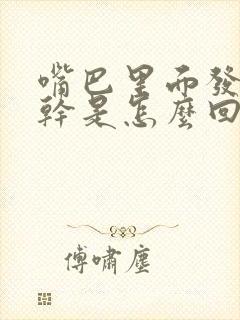 嘴巴里面發
幹是怎麼回
傅嘯塵